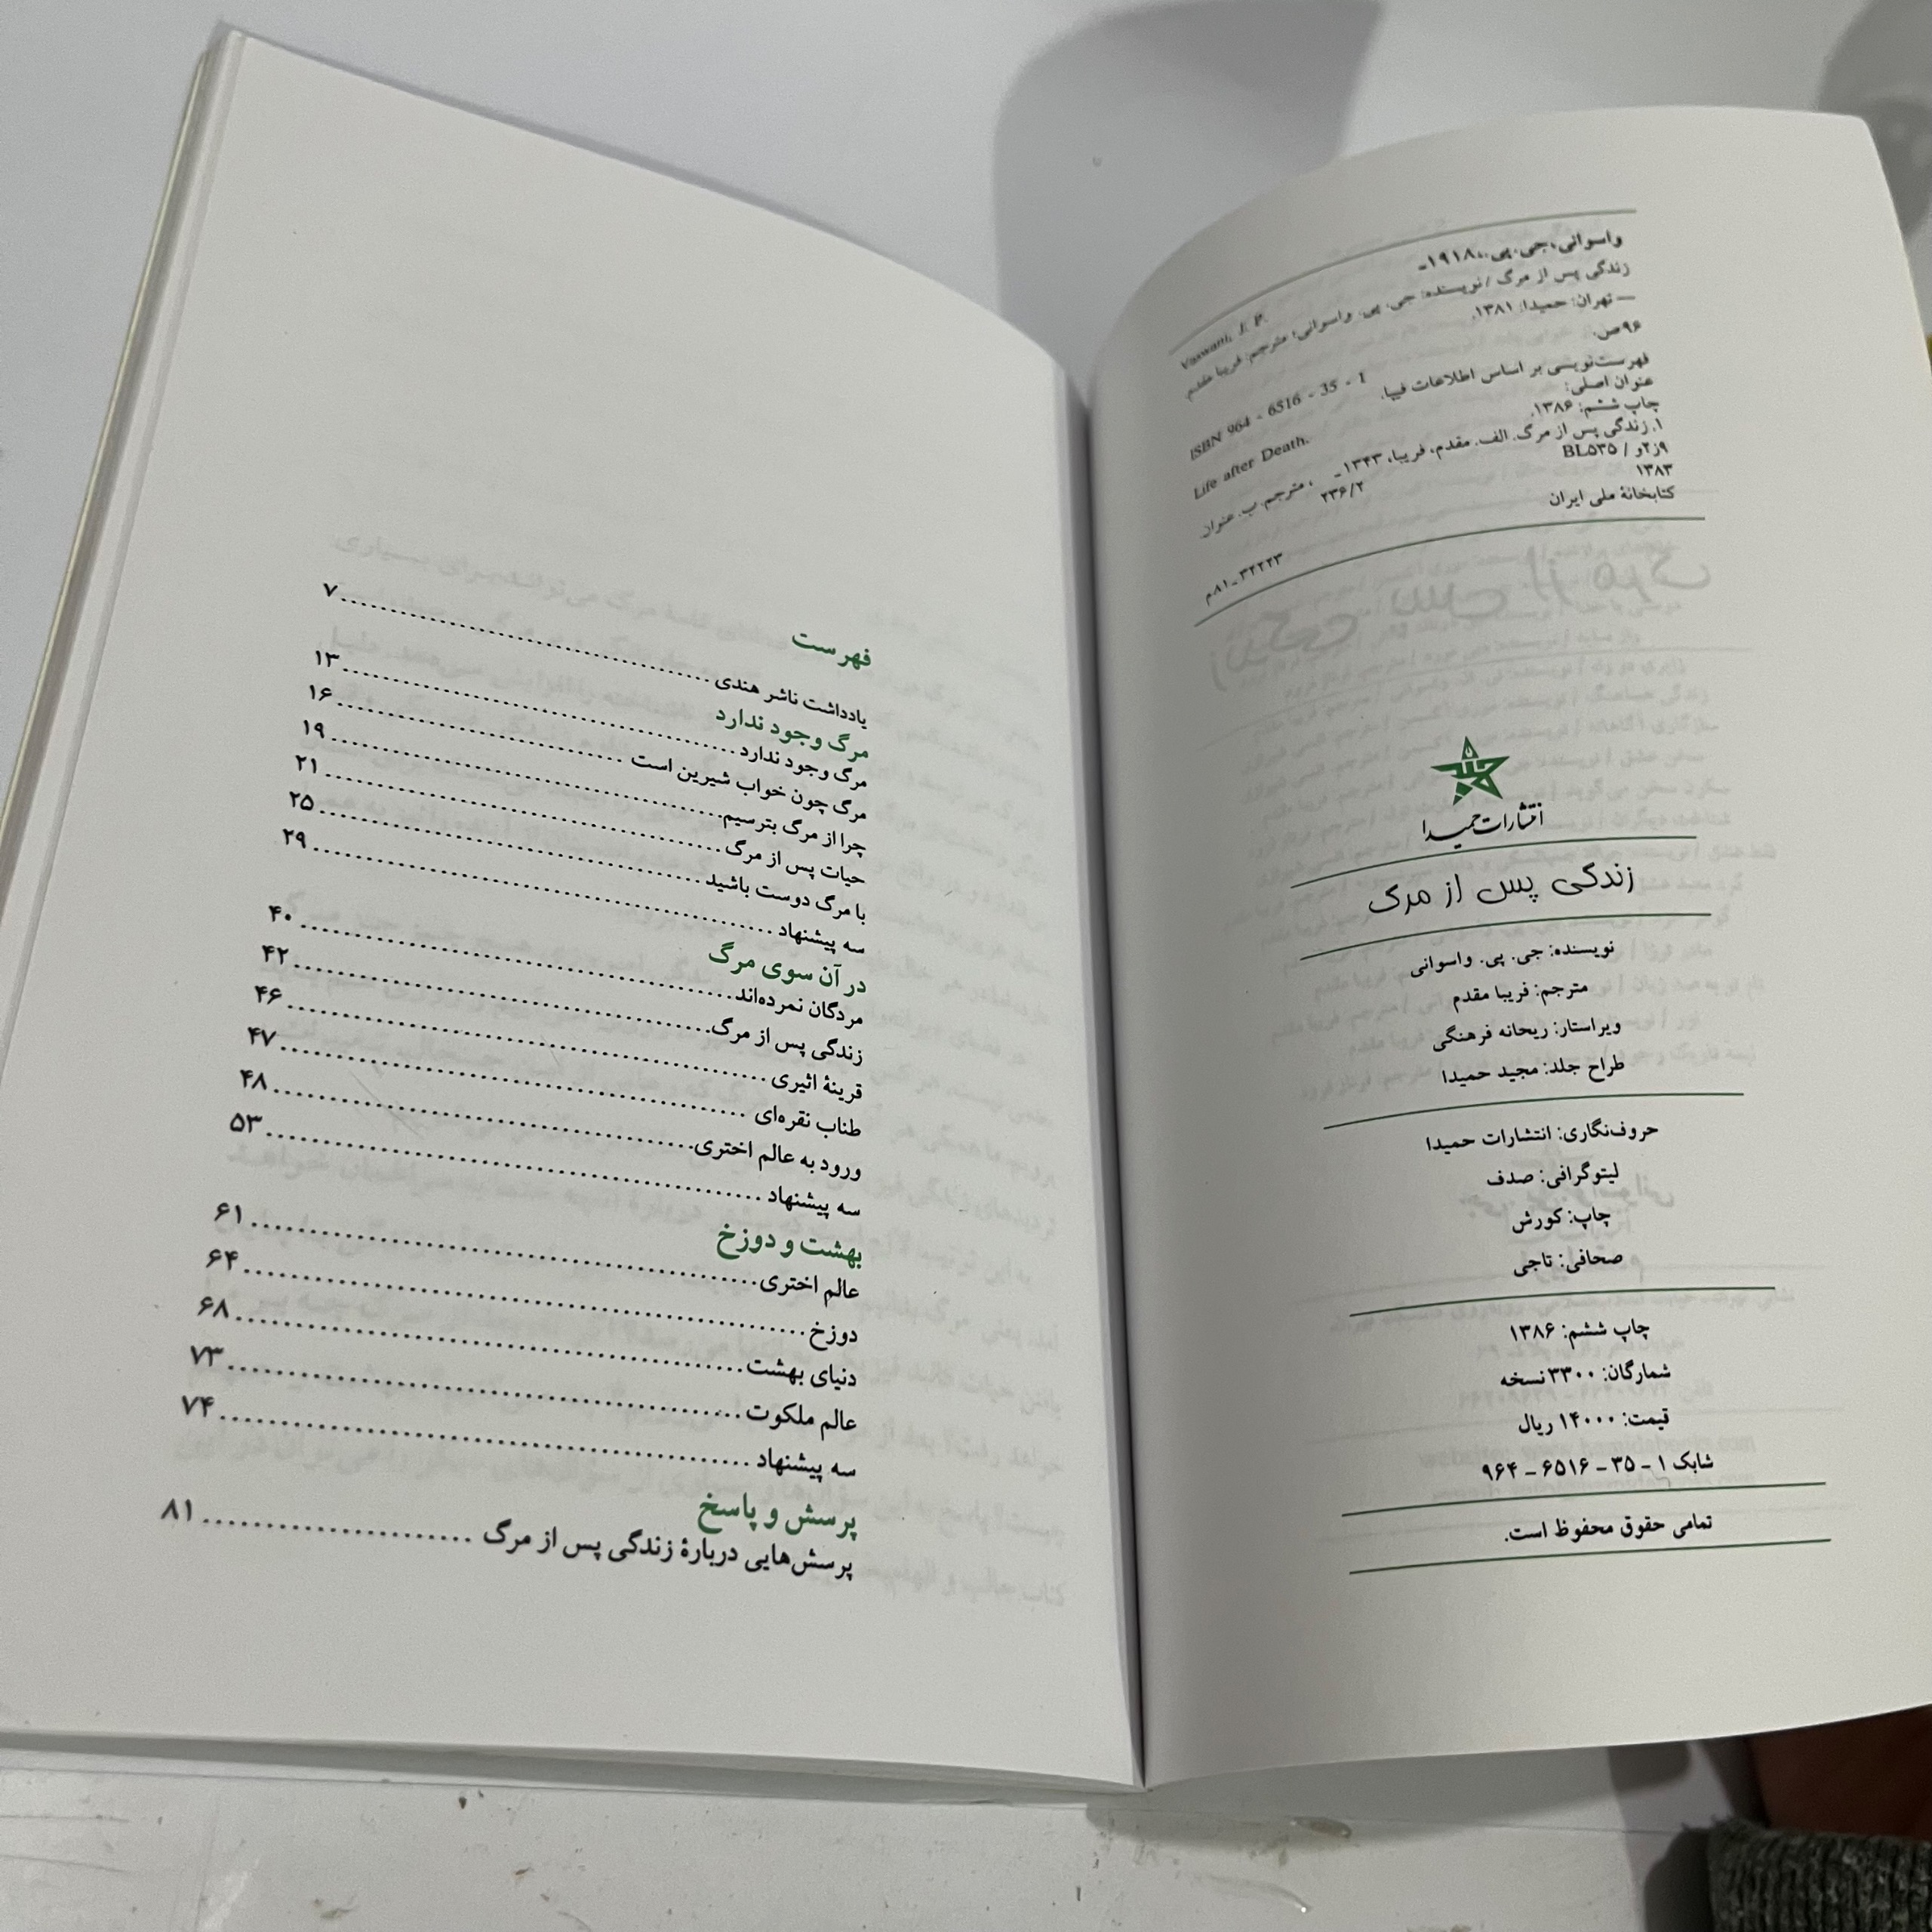 واسوانی، جی. پی.، ۱۹۱۸ـ
Vaswani, J. P.
زندگی پس از مرگ / نویسنده: جی. پی. واسوانی؛ مترجم: فریبا مقدم.
— تهران: حمیدا، ۱۳۸۱.
۹۶ص.
ISBN 964 - 6516 - 35 - 1
فهرست‌نویسی بر اساس اطلاعات فیپا.
عنوان اصلی:
Life after Death.
چاپ ششم: ۱۳۸۶.
۱. زندگی پس از مرگ. الف. مقدم، فریبا، ۱۳۴۳ـ ، مترجم. ب. عنوان.
۹ز۲و / BL۵۳۵
۲۳۶/۲
۱۳۸۳
کتابخانهٔ ملی ایران
۳۲۲۲۳ـ۸۱م
انتشارات حمیدا
زندگی پس از مرگ
نویسنده: جی. پی. واسوانی
مترجم: فریبا مقدم
ویراستار: ریحانه فرهنگی
طراح جلد: مجید حمیدا
حروف‌نگاری: انتشارات حمیدا
لیتوگرافی: صدف
چاپ: کورش
صحافی: تاجی
چاپ ششم: ۱۳۸۶
شمارگان: ۳۳۰۰ نسخه
قیمت: ۱۴۰۰۰ ریال
شابک ۱ - ۳۵ - ۶۵۱۶ - ۹۶۴
تمامی حقوق محفوظ است.
فهرست
یادداشت ناشر هندی ..... ۷
مرگ وجود ندارد
مرگ وجود ندارد ..... ۱۳
مرگ چون خواب شیرین است ..... ۱۶
چرا از مرگ بترسیم ..... ۱۹
حیات پس از مرگ ..... ۲۱
با مرگ دوست باشید ..... ۲۵
سه پیشنهاد ..... ۲۹
در آن سوی مرگ
مردگان نمرده‌اند ..... ۴۰
زندگی پس از مرگ ..... ۴۲
قرینهٔ اثیری ..... ۴۶
طناب نقره‌ای ..... ۴۷
ورود به عالم اختری ..... ۴۸
سه پیشنهاد ..... ۵۳
بهشت و دوزخ
عالم اختری ..... ۶۱
دوزخ ..... ۶۴
دنیای بهشت ..... ۶۸
عالم ملکوت ..... ۷۳
سه پیشنهاد ..... ۷۴
پرسش و پاسخ
پرسش‌هایی دربارهٔ زندگی پس از مرگ ..... ۸۱